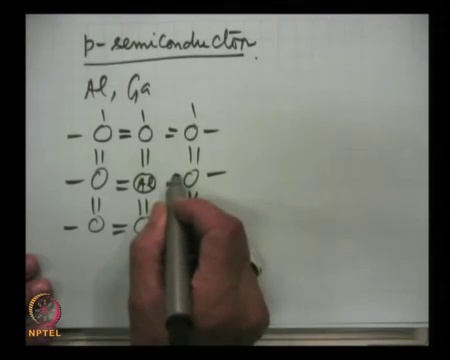 p-semiconductor.
Al, Ga
Al
NPTEL